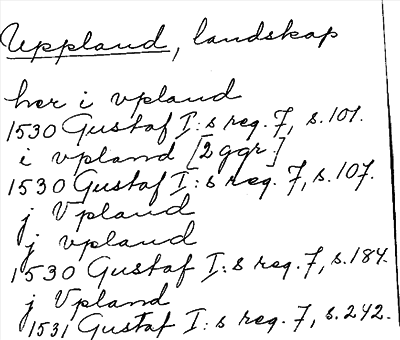 Uppland, landskap
her i vpland
1530 Gustaf I:s reg. 7, s.101.
i vpland [2 ggr.]
1530 Gustaf I:s reg. 7, s.107.
j Vpland
j vpland
1530 Gustaf I:s reg. 7, s.184.
j Vpland
1531 Gustaf I:s reg. 7, s.242.